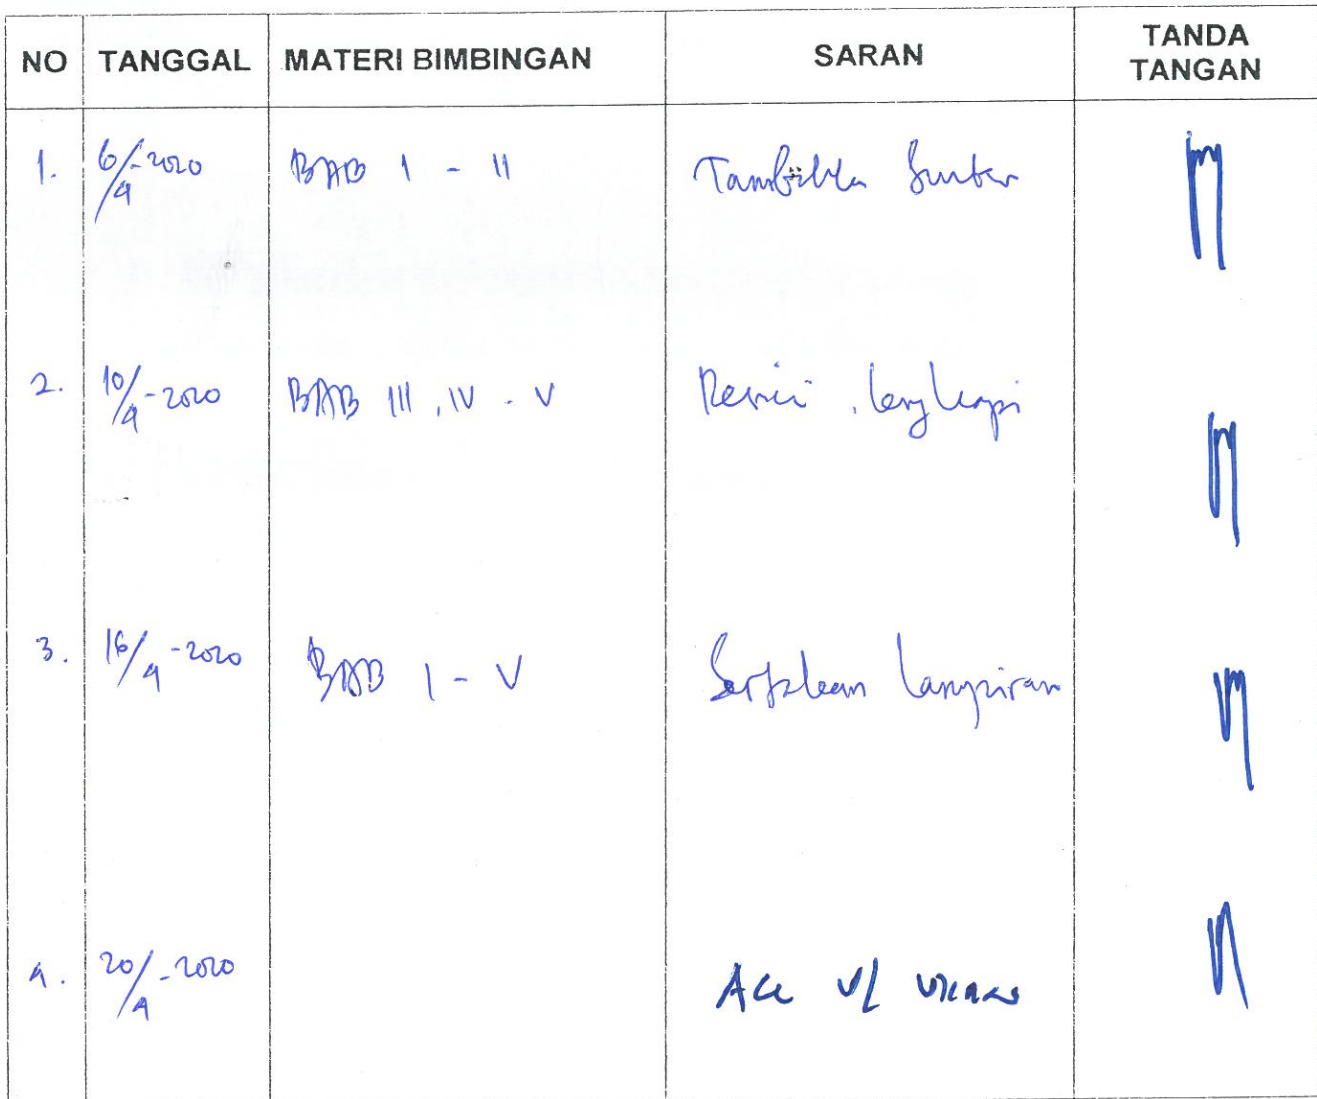 NO TANGGAL MATERI BIMBINGAN SARAN TANDA TANGAN
1. 6/4-2020 BAB I - II
2. 10/4-2020 BAB III, IV - V Revisi, lengkapi
3. 16/4-2020 BAB I - V Sertakan lampiran
4. 20/4-2020 Acc u/